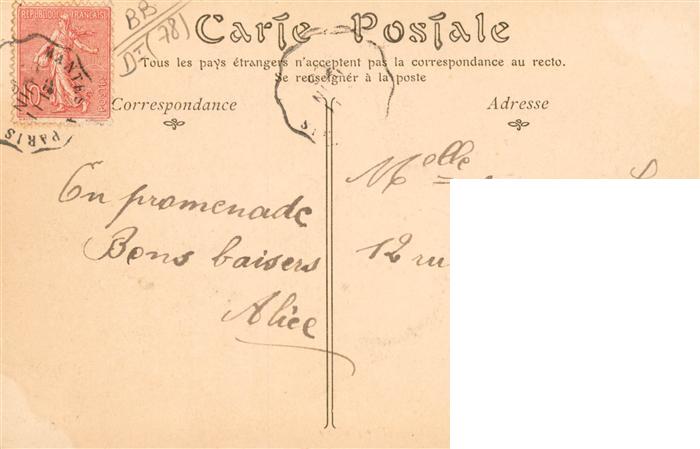 REPUBLIQUE FRANÇAISE
10
BB
Dt (78)
MANTES
PARIS
Carte Postale
Tous les pays étrangers n'acceptent pas la correspondance au recto.
Se renseigner à la poste
Correspondance
Adresse
En promenade
Bons baisers
Alice
Melle
12 ru